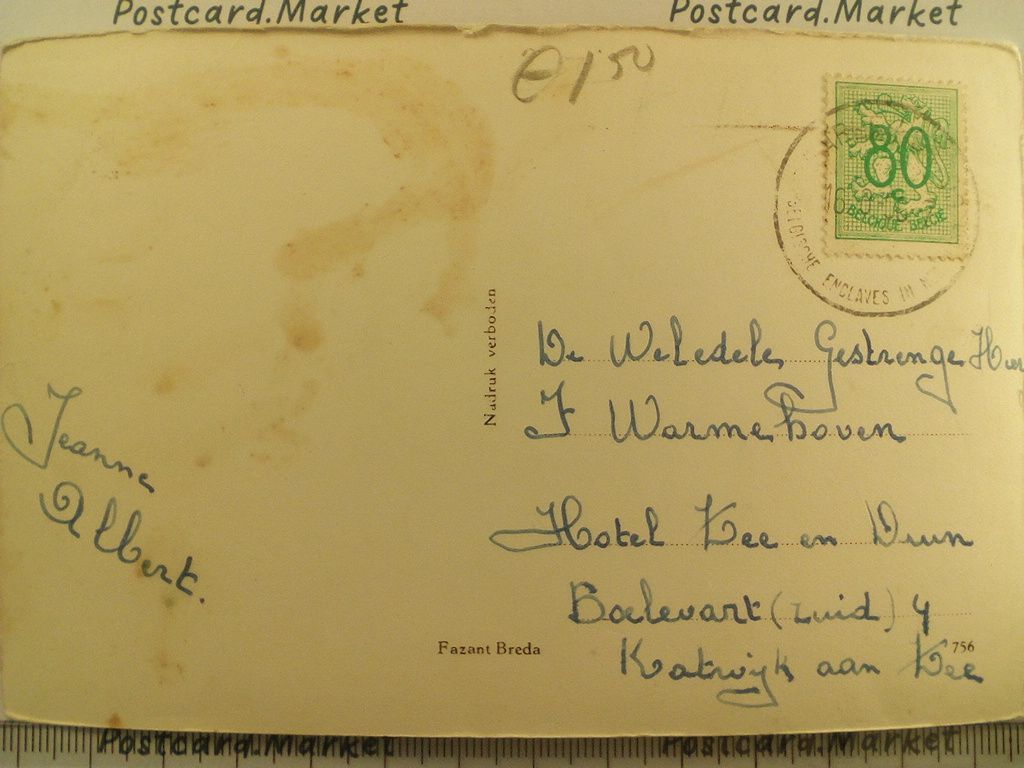 Postcard.Market Postcard.Market
€ 1,50
80
c
BELGIQUE BELGIË
BELGISCHE ENCLAVES IN
Nadruk verboden
De Weledele Gestrenge Heer
J Warmenhoven
Hotel Zee en Duin
Boelevart (zuid) 4
Katwijk aan Zee
Jeanne
Albert.
Fazant Breda
756
Postcard.Market Postcard.Market